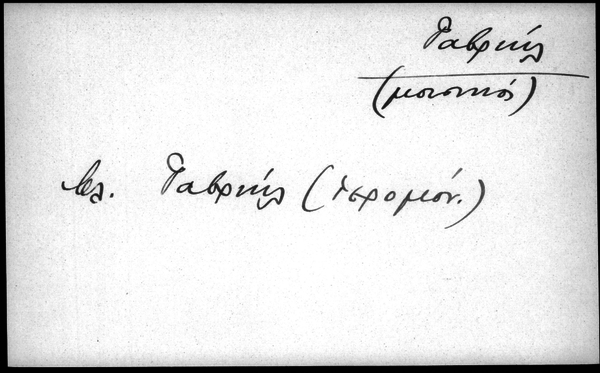 Γαβριήλ
(μουσικός)
βλ. Γαβριήλ (ἱερομόν.)